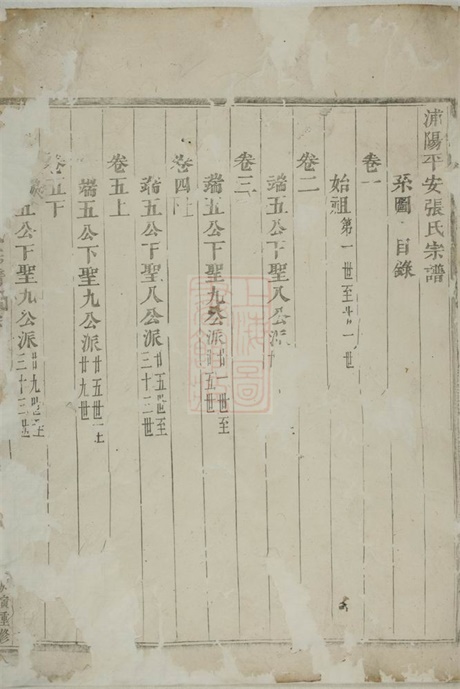 浦陽平安張氏宗譜
系圖 目錄
卷一
始祖第一世至廿一世
卷二
端五公下聖八公派
卷三
端五公下聖九公派廿一世至廿五世
卷四上
端五公下聖八公派廿五世至三十三世
卷五上
端五公下聖九公派廿五世至廿九世
卷五下
五公下聖九公派廿九世至三十三世
重修